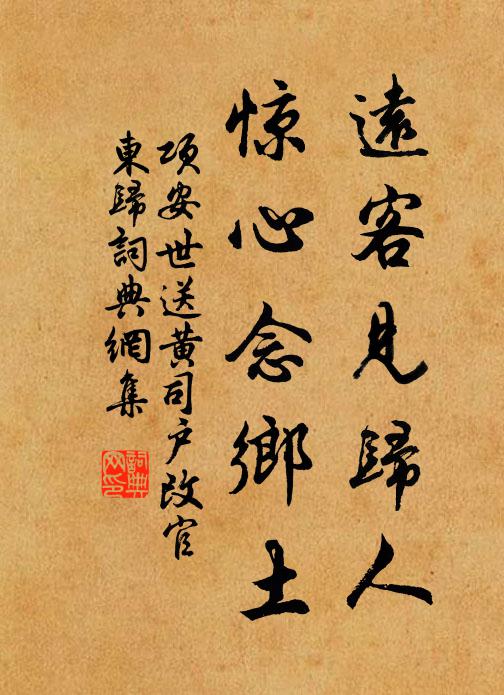 遠客見歸人
惊心念鄉土
項安世送黃司户改官
東歸詞典網集
詞典
网印